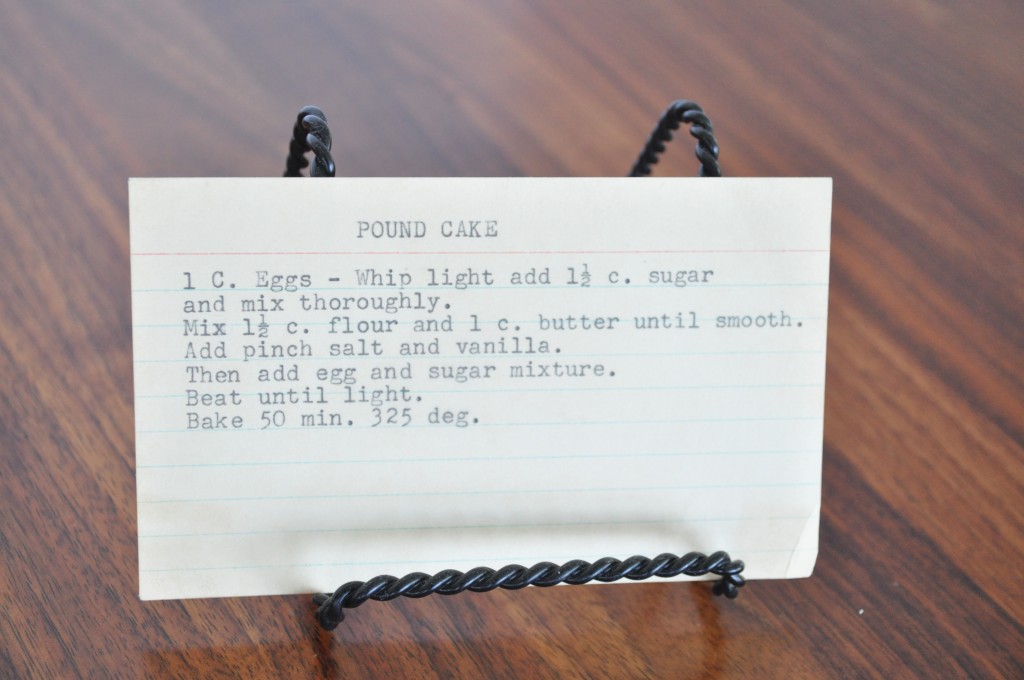 POUND CAKE
1 C. Eggs - Whip light add 1½ c. sugar
and mix thoroughly.
Mix 1½ c. flour and 1 c. butter until smooth.
Add pinch salt and vanilla.
Then add egg and sugar mixture.
Beat until light.
Bake 50 min. 325 deg.